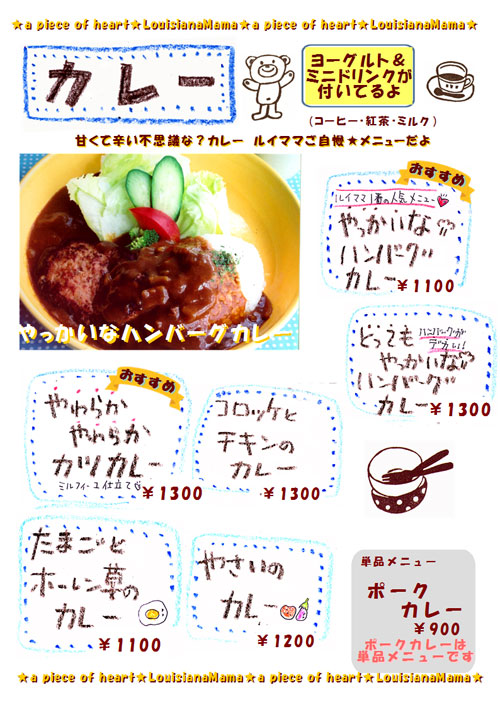 ★a piece of heart★LouisianaMama★a piece of heart★LouisianaMama★
カレー
ヨーグルト＆
ミニドリンクが
付いてるよ
(コーヒー・紅茶・ミルク)
甘くて辛い不思議な？カレー ルイママご自慢★メニューだよ
おすすめ
ルイママ1番の人気メニュー
やっかいな
ハンバーグ
カレー
￥1100
やっかいなハンバーグカレー
とっても
ハンバーグが
デカい!!
やっかいな
ハンバーグ
カレー
￥1300
おすすめ
やわらか
やわらか
カツカレー
ミルフィーユ仕立て
￥1300
コロッケと
チキンの
カレー
￥1300
たまごと
ホーレン草の
カレー
￥1100
やさいの
カレー
￥1200
単品メニュー
ポーク
カレー
￥900
ポークカレーは
単品メニューです
★a piece of heart★LouisianaMama★a piece of heart★LouisianaMama★